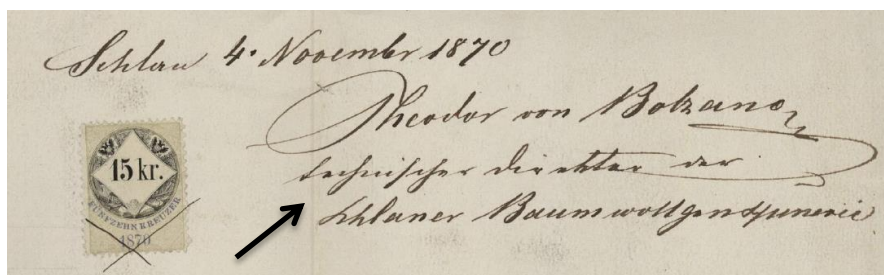 Schlan 4. November 1870
Theodor von Bolzano
technischer Direktor der
Schlaner Baumwollgarnspinnerei
15 kr.
FÜNFZEHN KREUZER
1870